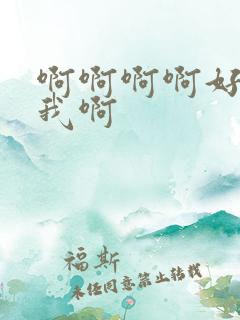 啊啊啊啊好
我啊
福斯
未经同意禁止转载